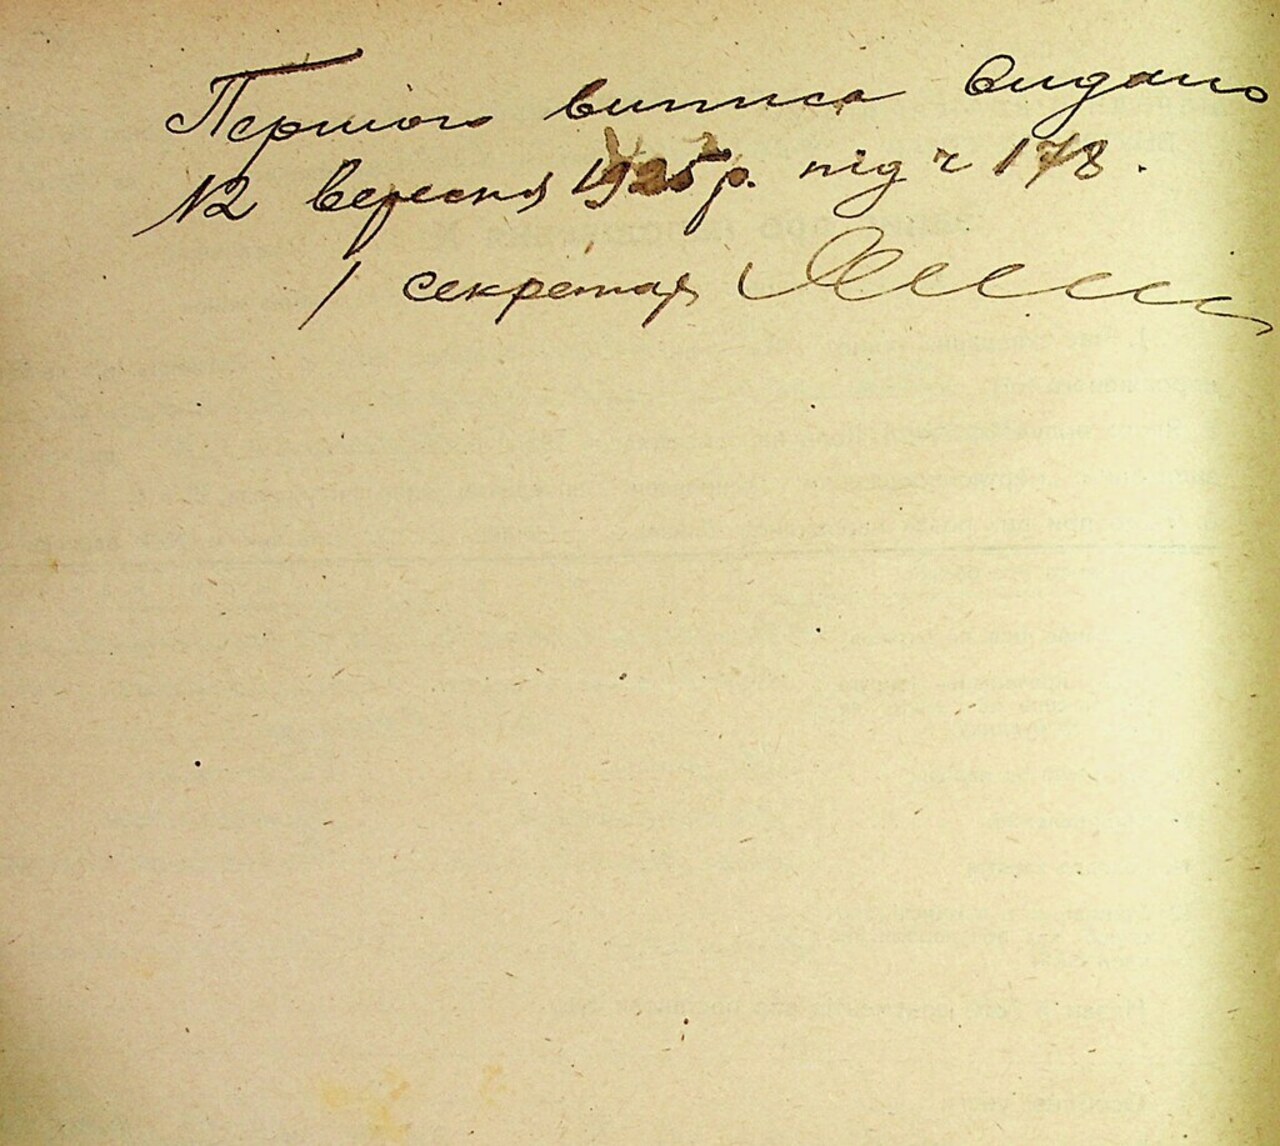 Першого виписа видано
12 вересня 1925 р. під ч 178.
/ секретар